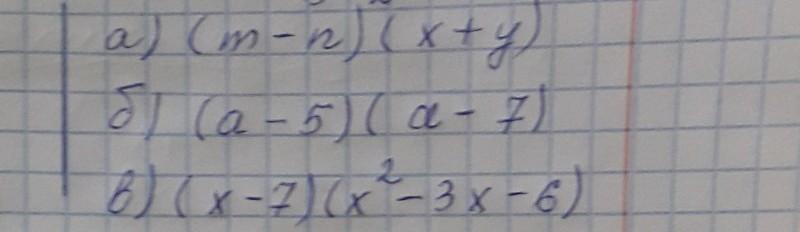 а) (m-n)(x+y)
б) (a-5)(a-7)
в) (x-7)(x²-3x-6)